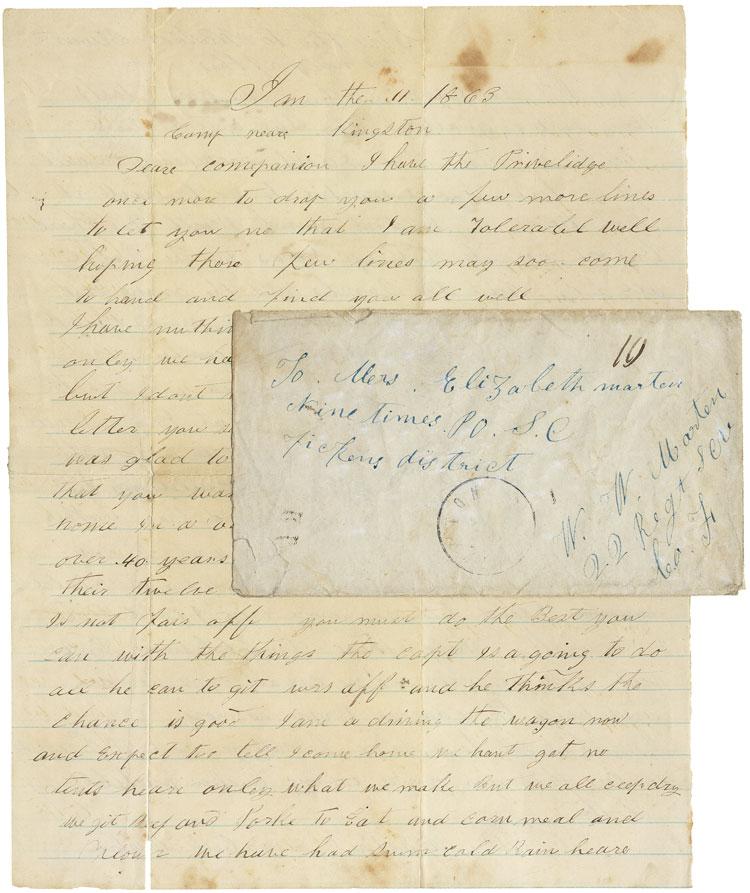 Jan the 11 1863
Camp neare Kingston
Deare companion I have the Privelidge
once more to drop you a few more lines
to let you no that I am Tolerabel well
hoping those few lines may soon come
to hand and find you all well
I have nuthin
only we
but I dont
letter you
was glad to
that you was
home in a
over 40 years
their twelve
Is not fair off you must do the Best you
can with the things the capt is a going to do
all he can to git urs off and he thinks the
chance is good I am a driving the wagon now
and Expect too tell I come home we hant got no
tents heare only what we make but we all ceep dry
we git Beef and Porke to Eat and corn meal and
we have had sum cold Rain heare
10
To Mers. Elizabeth marten
Nine times PO S.C
Pickens district
W. W. Marten
22 Regt SCV
Co. F